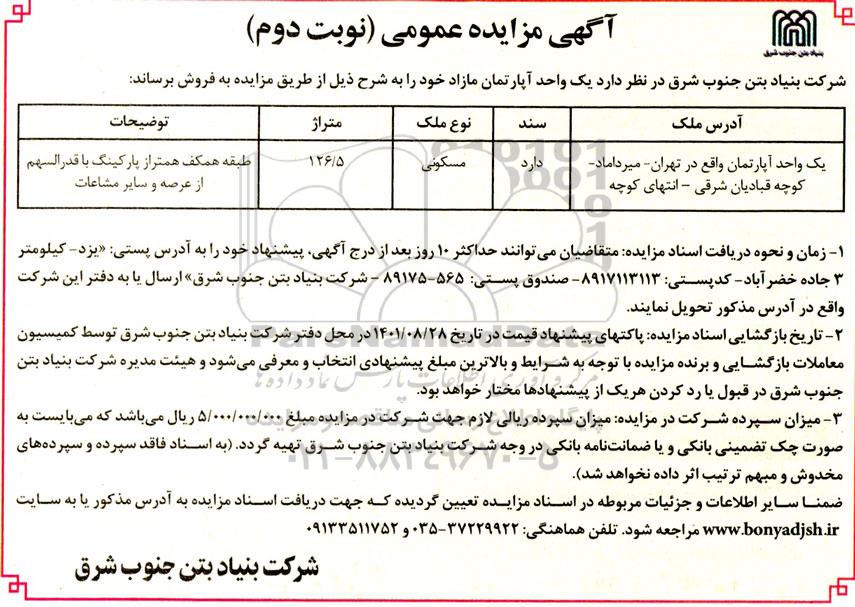 آگهی مزایده عمومی (نوبت دوم)
بنیاد بتن جنوب شرق
شرکت بنیاد بتن جنوب شرق در نظر دارد یک واحد آپارتمان مازاد خود را به شرح ذیل از طریق مزایده به فروش برساند:
آدرس ملک	سند	نوع ملک	متراژ	توضیحات
یک واحد آپارتمان واقع در تهران- میرداماد-	دارد	مسکونی	۱۲۶/۵	طبقه همکف همتراز پارکینگ با قدرالسهم
کوچه قبادیان شرقی – انتهای کوچه	از عرصه و سایر مشاعات
۱- زمان و نحوه دریافت اسناد مزایده: متقاضیان می‌توانند حداکثر ۱۰ روز بعد از درج آگهی، پیشنهاد خود را به آدرس پستی: «یزد- کیلومتر
۳ جاده خضرآباد- کدپستی: ۸۹۱۷۱۱۳۱۱۳- صندوق پستی: ۵۶۵-۸۹۱۷۵ – شرکت بنیاد بتن جنوب شرق» ارسال یا به دفتر این شرکت
واقع در آدرس مذکور تحویل نمایند.
۲- تاریخ بازگشایی اسناد مزایده: پاکتهای پیشنهاد قیمت در تاریخ ۱۴۰۱/۰۸/۲۸ در محل دفتر شرکت بنیاد بتن جنوب شرق توسط کمیسیون
معاملات بازگشایی و برنده مزایده با توجه به شرایط و بالاترین مبلغ پیشنهادی انتخاب و معرفی می‌شود و هیئت مدیره شرکت بنیاد بتن
جنوب شرق در قبول یا رد کردن هر یک از پیشنهادها مختار خواهد بود.
۳- میزان سپرده شرکت در مزایده: میزان سپرده ریالی لازم جهت شرکت در مزایده مبلغ ۵/۰۰۰/۰۰۰/۰۰۰ ریال می‌باشد که می‌بایست به
صورت چک تضمینی بانکی و یا ضمانت‌نامه بانکی در وجه شرکت بنیاد بتن جنوب شرق تهیه گردد. (به اسناد فاقد سپرده و سپرده‌های
مخدوش و مبهم ترتیب اثر داده نخواهد شد).
ضمنا سایر اطلاعات و جزئیات مربوطه در اسناد مزایده تعیین گردیده که جهت دریافت اسناد مزایده به آدرس مذکور یا به سایت
www.bonyadjsh.ir مراجعه شود. تلفن هماهنگی: ۳۷۲۲۹۹۲۲-۰۳۵ و ۰۹۱۳۳۵۱۱۷۵۲
شرکت بنیاد بتن جنوب شرق
ParsNamadData
مرکز فرآوری اطلاعات پارس نماد داده‌ها
۰۲۱-۸۸۳۴۹۶۷۰-۵